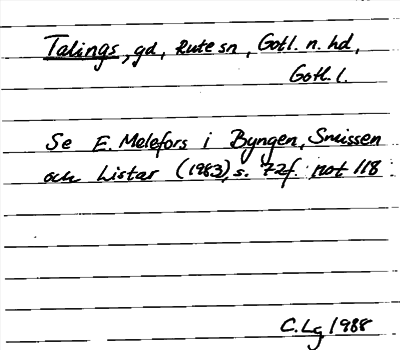 Talings, gd, Rute sn, Gotl. n. hd,
Gotl. l.
Se E. Melefors i Byngen, Snuissen
och Listar (1983), s. 72f. not 118
C. Lg 1988